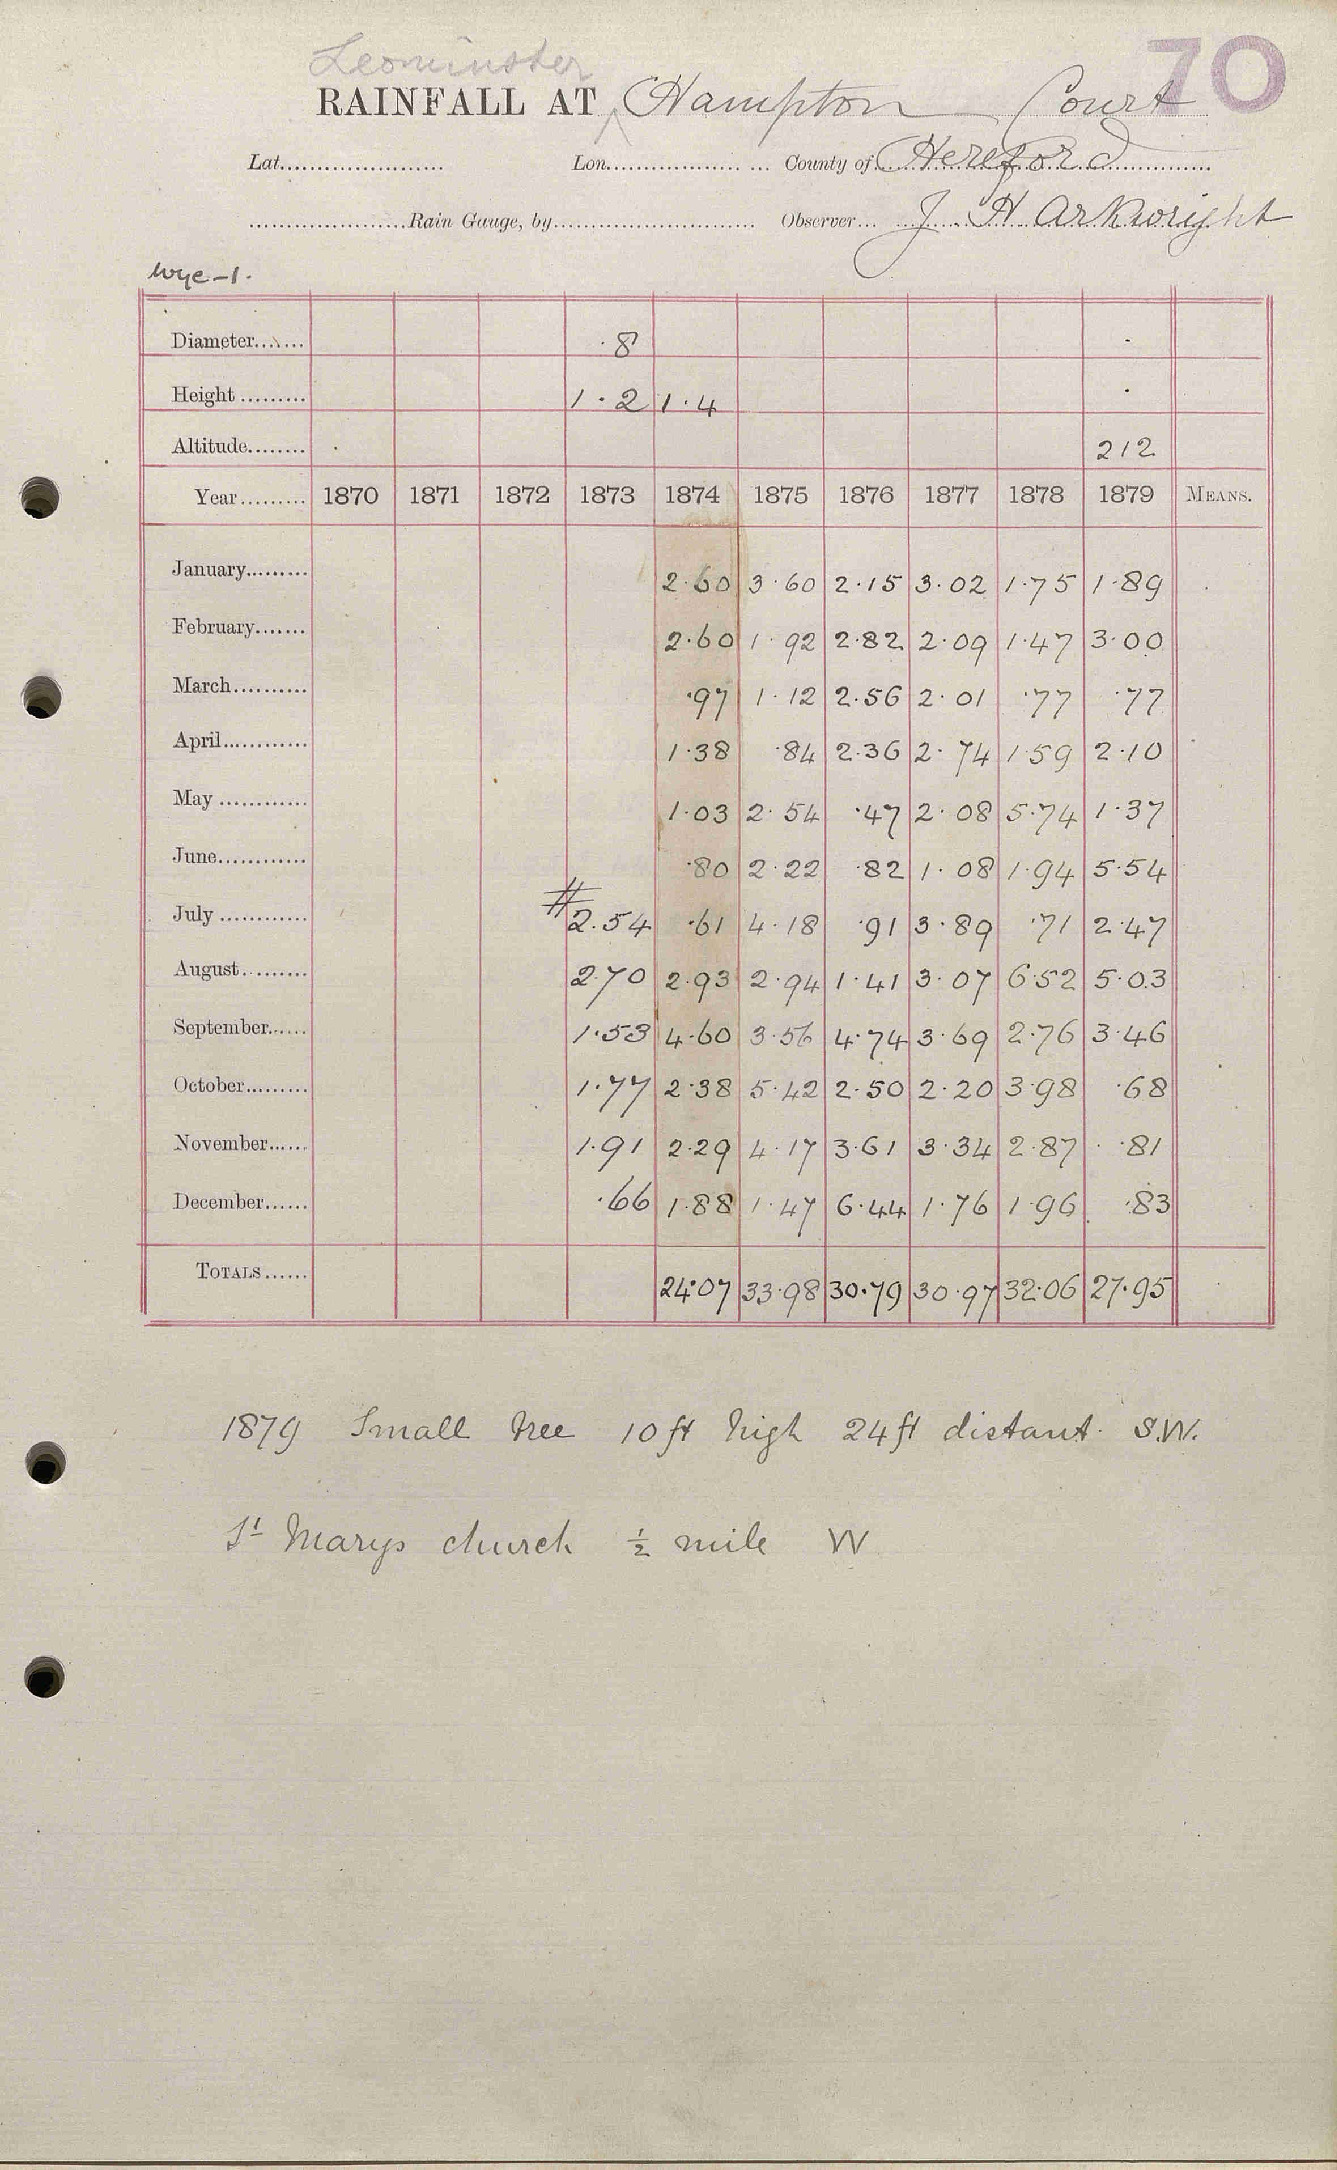 70
Leominster
RAINFALL AT ^ Hampton Court
Lat...................... Lon................... ... County of Hereford
......................Rain Gauge, by............................ Observer... J. H Arkwright
Wye-1.
Diameter....... ·8
Height ......... 1·2 1·4
Altitude........ 212
Year......... 1870 1871 1872 1873 1874 1875 1876 1877 1878 1879 MEANS.
January......... 2·60 3·60 2·15 3·02 1·75 1·89
February....... 2·60 1·92 2·82 2·09 1·47 3·00
March.......... ·97 1·12 2·56 2·01 ·77 ·77
April............ 1·38 ·84 2·36 2·74 1·59 2·10
May ............ 1·03 2·54 ·47 2·08 5·74 1·37
June............ ·80 2·22 ·82 1·08 1·94 5·54
July ............ # 2.54 ·61 4·18 ·91 3·89 ·71 2·47
August.......... 2·70 2·93 2·94 1·41 3·07 6·52 5·03
September...... 1·53 4·60 3·56 4·74 3·69 2·76 3·46
October......... 1·77 2·38 5·42 2·50 2·20 3·98 ·68
November...... 1·91 2·29 4·17 3·61 3·34 2·87 ·81
December...... ·66 1·88 1·47 6·44 1·76 1·96 ·83
TOTALS...... 24·07 33·98 30·79 30·97 32·06 27·95
1879 Small tree 10ft high 24ft distant. S.W.
St Marys church ½ mile W